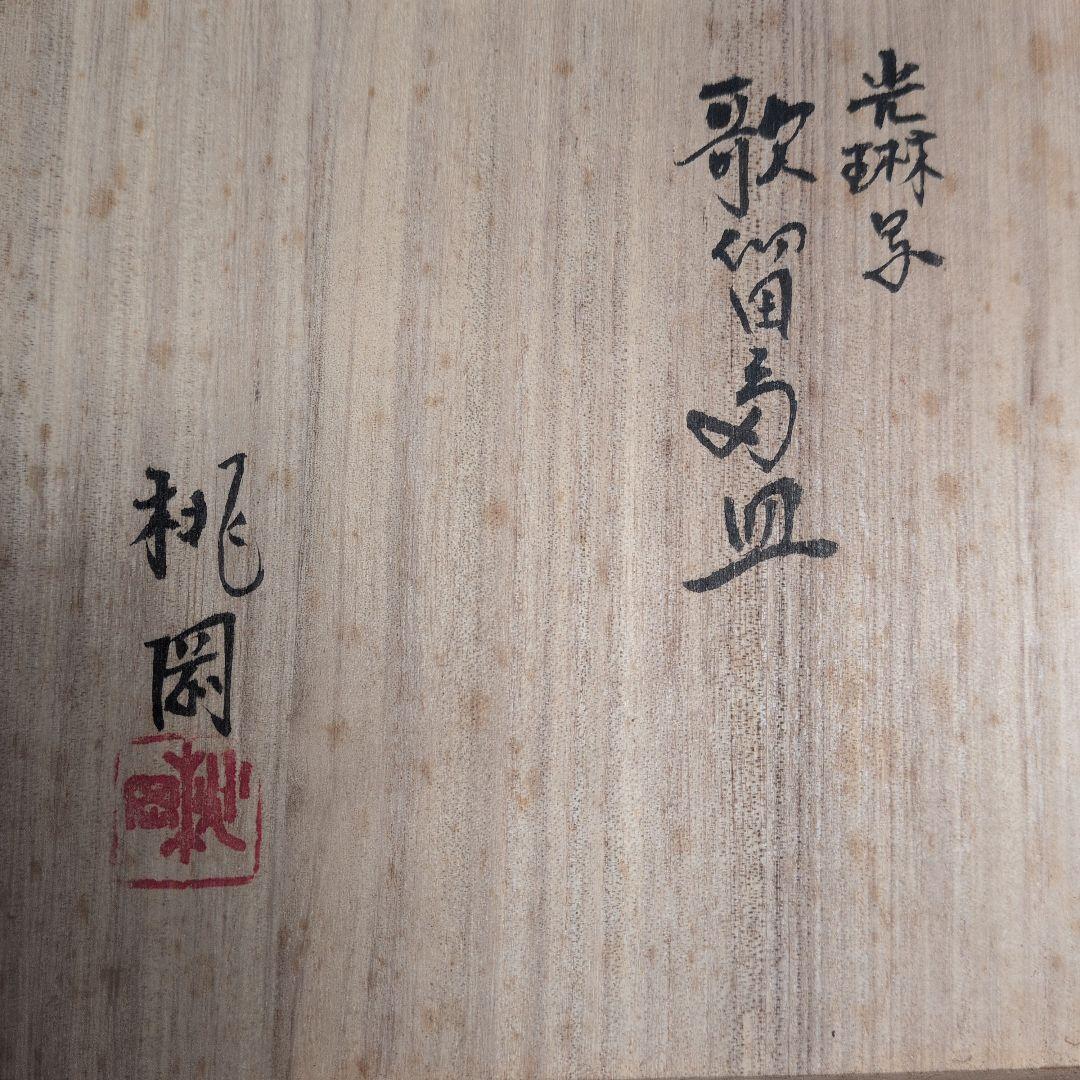 光琳写
歌留多皿
桃岡